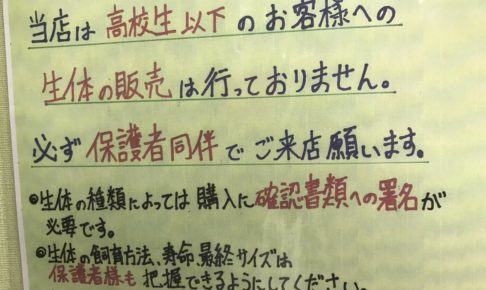 当店は高校生以下のお客様への
生体の販売は行っておりません。
必ず保護者同伴でご来店願います。
●生体の種類によっては購入に確認書類への署名が
必要です。
●生体の飼育方法、寿命、最終サイズは
保護者様も把握できるようにしてください。